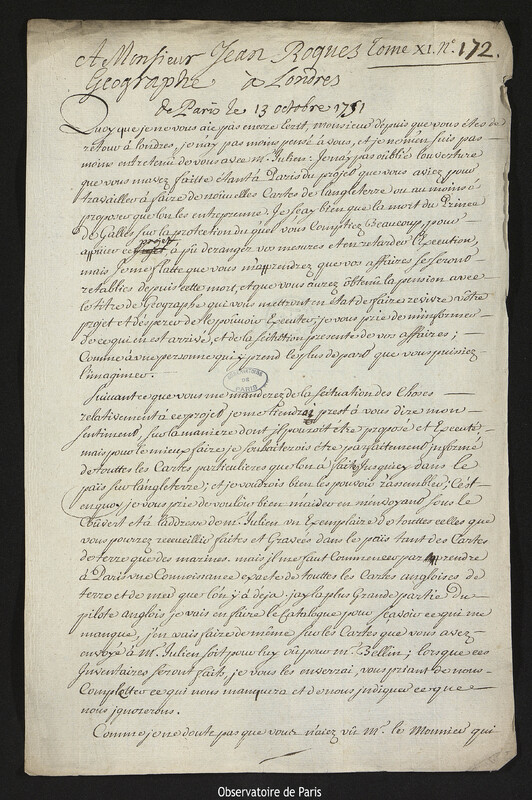 A Monsieur Jean Roques Tome XI. N.° 172.
Geographe à Londres
de Paris le 13 octobre 1751
Quoy que je ne vous aie pas encore Ecrit, monsieur depuis que vous êtes de
retour à londres, je n'ay pas moins pensé a vous, et je m'en suis pas
moins entretenu de vous avec m. Julien. Je n'ay pas oublié l'ouverture
que vous m'avez faitte étant à Paris du projet que vous aviez pour
travailler à faire de nouvelles Cartes de l'angleterre ou au moins à
proposer que l'on les entreprenne. Je sçay bien que la mort du Prince
de Galles sur la protection du quel vous Comptiez Beaucoup, pour
appuier ce projet, a pû déranger vos mesures et en retarder l'Execution,
mais je me flatte que vous m'apprendrez que vos affaires se seront
retablies depuis cette mort, et que vous aurez obtenu la pension avec
le titre de Géographe qui vous mettront en état de faire revivre vôtre
projet et d'esperer de le pouvoir Executer; je vous prie de m'informer
de ce qui en est arrivé, et de la scituation presente de vos affaires;
Comme à une personne qui y prend le plus de part que vous puissiez
l'imaginer.
OBSERVATOIRE DE PARIS
Suivant ce que vous me manderez de la scituation des Choses
relativement à ce projet, je me tiendrai prest à vous dire mon
sentiment, sur la manière dont il pourroit être proposé et Executé;
mais pour le mieux faire je souhaiterois être parfaitement informé
de touttes les Cartes particulieres que l'on a fait jusqu'icy dans le
païs sur l'angleterre; et je voudrois bien les pouvoir rassembler; C'est
en quoy je vous prie de vouloir bien m'aider en m'envoyant sous le
Couvert et à l'addresse de m. Julien un Exemplaire de touttes celles que
vous pourrez recueillir faites et Gravées dans le païs tant des Cartes
de terre que des marines. mais il me faut Commencer par prendre
à Paris une Connoissance exacte de touttes les Cartes angloises de
terre et de mer que l'on y a deja. j'ay la plus Grande partie du
pilote anglois je vais en faire le Catalogue pour sçavoir ce qui me
manque, j'en vais faire de même sur les Cartes que vous avez
envoyé à M. Julien soit pour luy où pour m. Bellin; lorsque ces
Inventaires seront faits, je vous les enverrai, vous priant de nous
Completter ce qui nous manquera et de nous indiquer ce que
nous ignorerons.
Comme je ne doute pas que vous n'aiez vû M. le Monnier qui
Observatoire de Paris